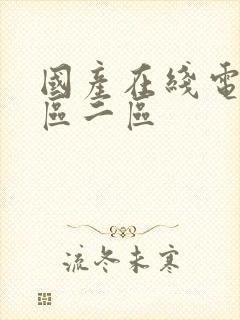 國產在綫電
區二區
流冬未寒